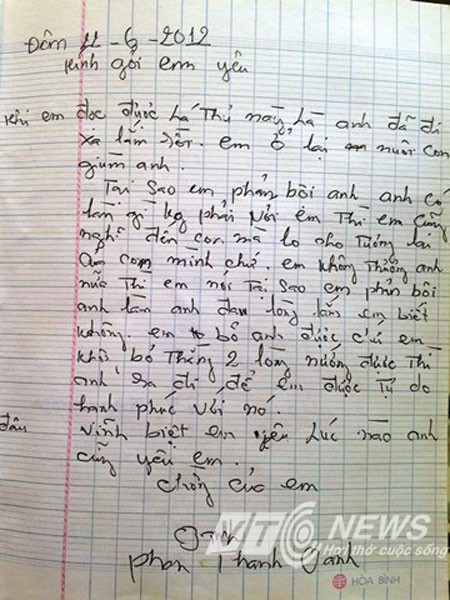 Đêm 11-6-2012
kính gởi em yêu
khi em đọc được Lá Thư này Là anh đã đi
xa lắm rồi. em ở lại nuôi con
giùm anh.
Tại Sao em phản bôi anh anh có
làm gì kg phải Với em Thì em cũng
nghĩ đến con mà lo cho Tương lai
của con mình chứ. em không Thương anh
nữa Thì em nói Tại Sao em phản bôi
anh làm anh đau lòng lắm em biết
không. em bỏ anh được chứ em
khôi bỏ Thằng 2 lòng nuống được Thì
anh ra đi để em được Tự do
hạnh phúc với nó.
vĩnh biệt em yêu Lúc nào anh
cũng yêu em.
chồng của em
Oanh
phan Thanh Oanh
đâu
VTC NEWS
Hơi thở cuộc sống
HÒA BÌNH